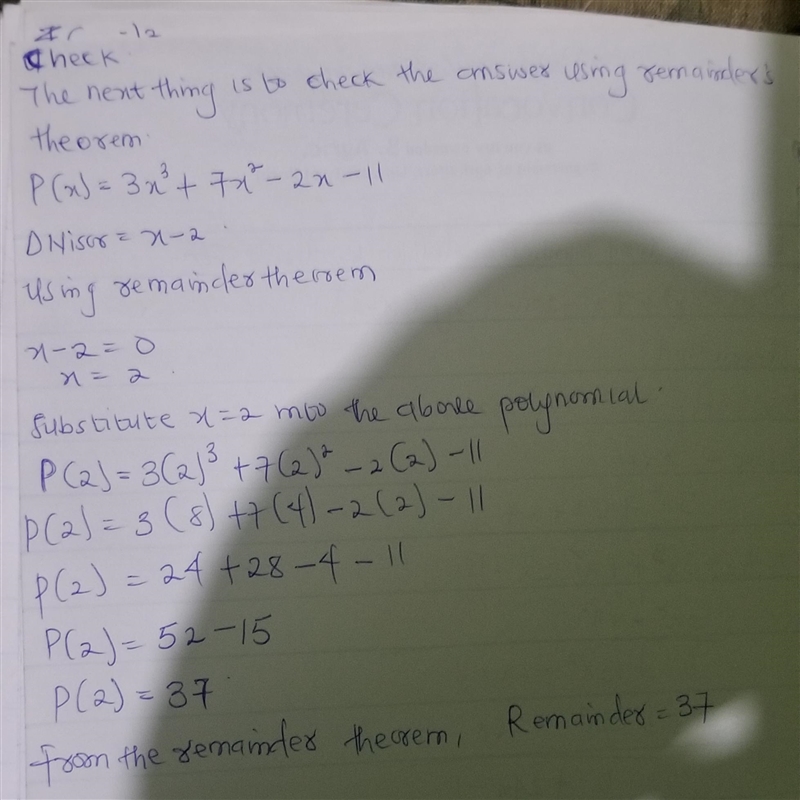 -12
Check
The next thing is to check the answer using remainder's
theorem.
P(x) = 3x³ + 7x² - 2x - 11
Divisor = x-2
Using remainder theorem
x-2 = 0
x = 2
Substitute x=2 into the above polynomial.
P(2) = 3(2)³ + 7(2)² - 2(2) - 11
P(2) = 3(8) + 7(4) - 2(2) - 11
P(2) = 24 + 28 - 4 - 11
P(2) = 52 - 15
P(2) = 37
From the remainder theorem, Remainder = 37